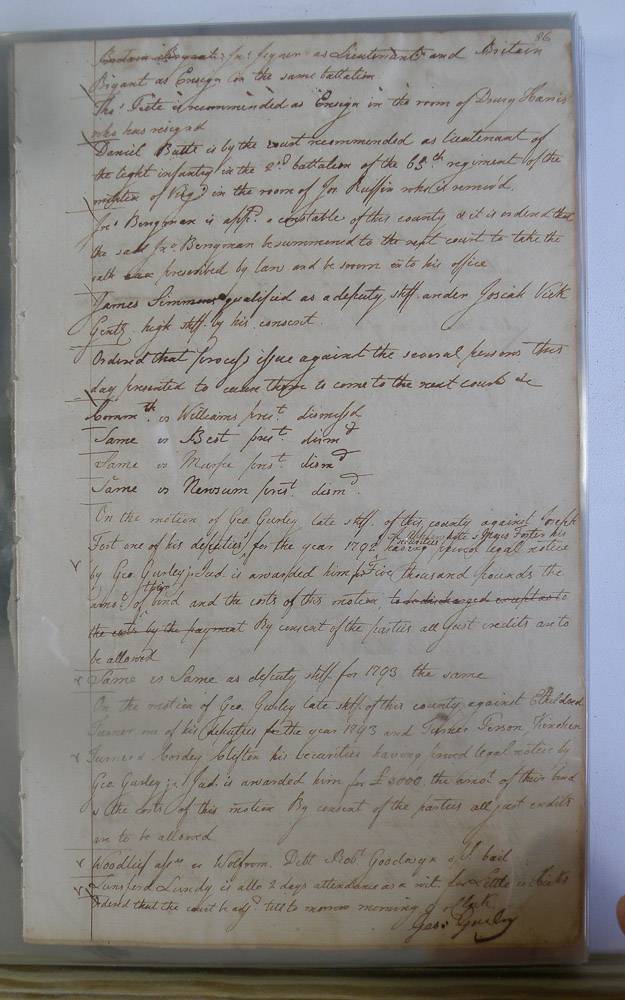 86
Jnr. Ensign as Lieutenant and Britain
Bryant as Ensign in the same battalion
Thos. Pete is recommended as Ensign in the room of Drury Harris
who has resign'd
Daniel Butts is by the court recommended as lieutenant of
the light infantry in the 2d. battalion of the 65th regiment of the
militia of Virga. in the room of Jos. Ruffin who is remov'd.
Jno. Bengman is appd. a constable of this county & it is ordered that
the said Jno. Bengman be summoned to the next court to take the
oath prescribed by law and be sworn into his office
James Simmons qualified as a deputy shff. under Josiah Vick
Gentn. high shff. by his consent.
Ordered that process issue against the several persons this
day presented to cause them to come to the next court &c
Commth. vs Williams prest. dismiss'd
Same vs Best prest. dismd
Same vs prest. dismd
Same vs Newsum prest. dismd.
On the motion of Geo. Gurley late shff. of this county against Joseph
Fort one of his deputies, for the year 1792 his
securities having proved legal notice
by Geo. Gurley jr. Jud. is awarded him for Five thousand pounds the
amot. of their bond and the costs of this motion, to be discharged except as to
the costs by the payment By consent of the parties all just credits are to
be allowed
Same vs Same as deputy shff. for 1793 the same
On the motion of Geo. Gurley late shff. of this county against Etheldred
Turner one of his deputies for the year 1793 and Turner Person, Kinchen
Turner & Cordey Clifton his securities having proved legal notice by
Geo Gurley jr. Jud. is awarded him for £5000 the amot. of their bond
& the costs of this motion By consent of the parties all just credits
are to be allowed
Woodlief assee. vs Wolfrom. Debt Robt. Goodwyn spl. bail
Lunsford Lundy is allo. 2 days attendance as a wit. for Little vs Hicks
Ordered that the court be adjd. till to morrow morning 9 oClock
Geo: Gurley